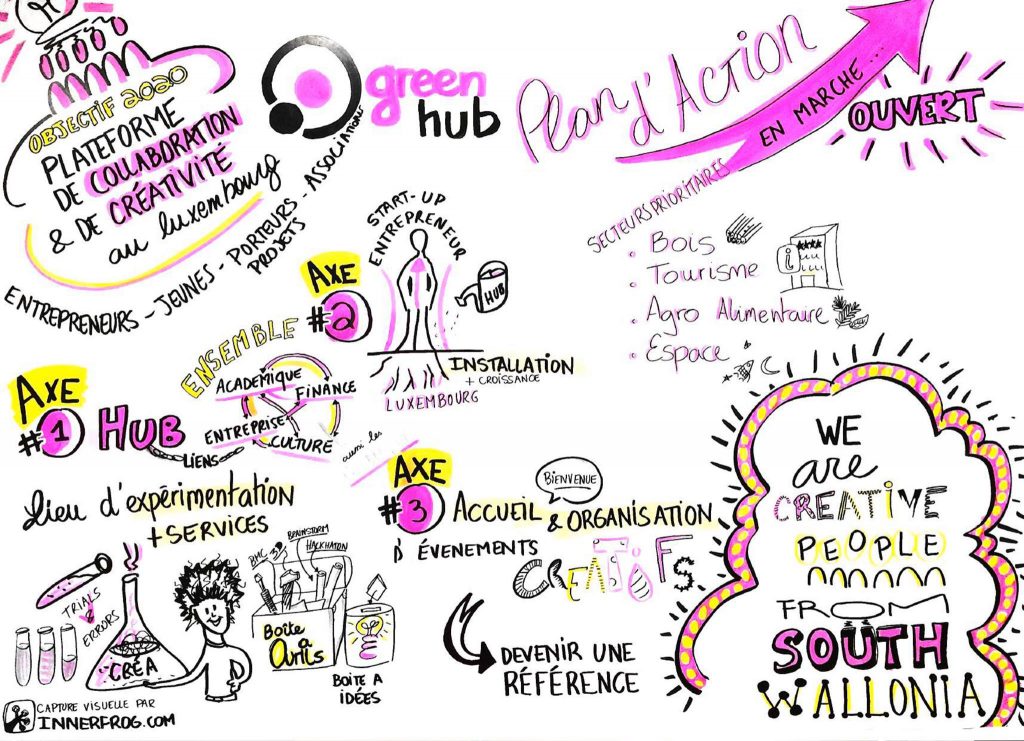 OBJECTIF 2020
PLATEFORME
DE COLLABORATION
& DE CRÉATIVITÉ
au luxembourg
ENTREPRENEURS - JEUNES - PORTEURS - ASSOCIATIONS
PROJETS
green
hub
Plan d'Action
EN MARCHE...
OUVERT
SECTEURS PRIORITAIRES
. Bois
. Tourisme
i
. Agro Alimentaire
. Espace
AXE
#1 HUB
LIENS
ENSEMBLE
ACADÉMIQUE
FINANCE
ENTREPRISE
CULTURE
aussi les
lieu d'expérimentation
+ SERVICES
TRIALS
&
ERRORS
CRÉA
BMC
3D
BRAINSTORM
HACKHATON
Boîte
à
Outils
BOITE A
IDÉES
AXE
#2
START-UP
ENTREPRENEUR
HUB
INSTALLATION
+ CROISSANCE
LUXEMBOURG
AXE
#3 ACCUEIL & ORGANISATION
BIENVENUE
D'ÉVENEMENTS
CREATIFS
DEVENIR UNE
RÉFÉRENCE
WE
are
CREATIVE
PEOPLE
FROM
SOUTH
WALLONIA
CAPTURE VISUELLE PAR
INNERFROG.COM